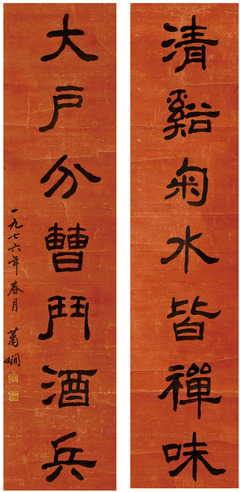 清谿菊水皆禪味
大戶分曹鬥酒兵
一九七六年春月 蕭嫻